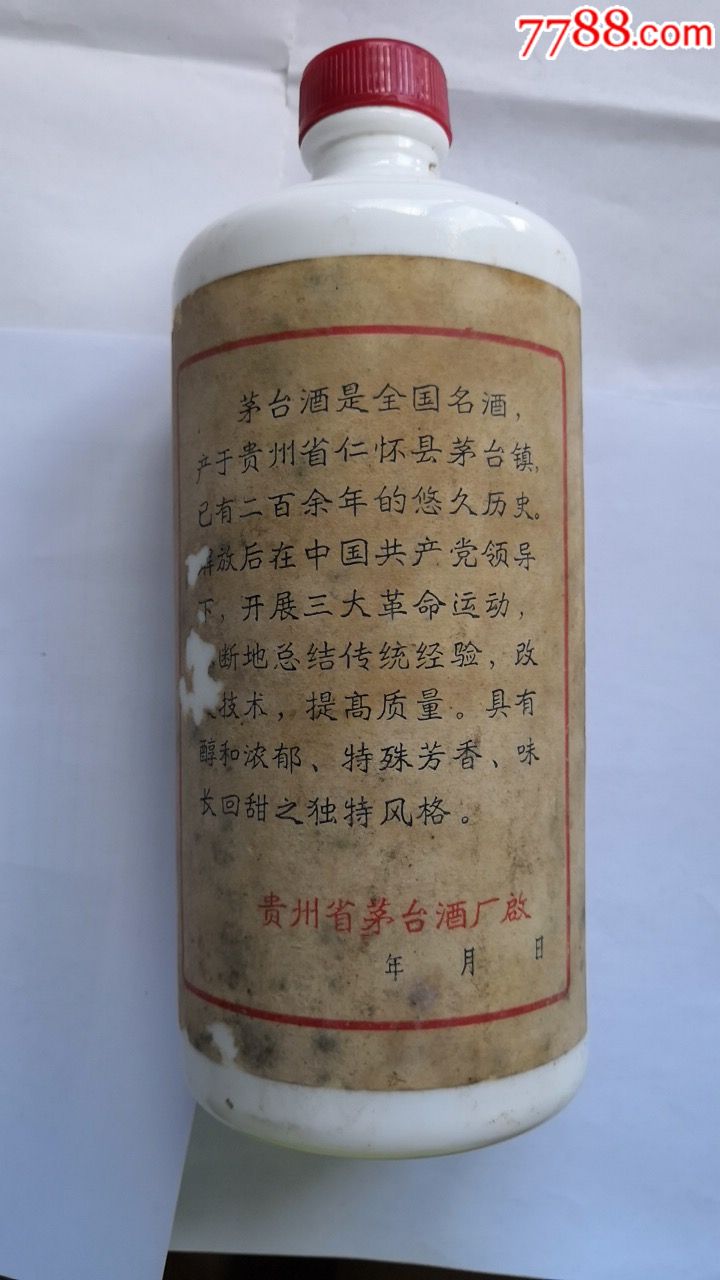 7788.com
茅台酒是全国名酒，
产于贵州省仁怀县茅台镇，
已有二百余年的悠久历史。
解放后在中国共产党领导
下，开展三大革命运动，
断地总结传统经验，改
技术，提高质量。具有
醇和浓郁、特殊芳香、味
长回甜之独特风格。
贵州省茅台酒厂啟
年 月 日